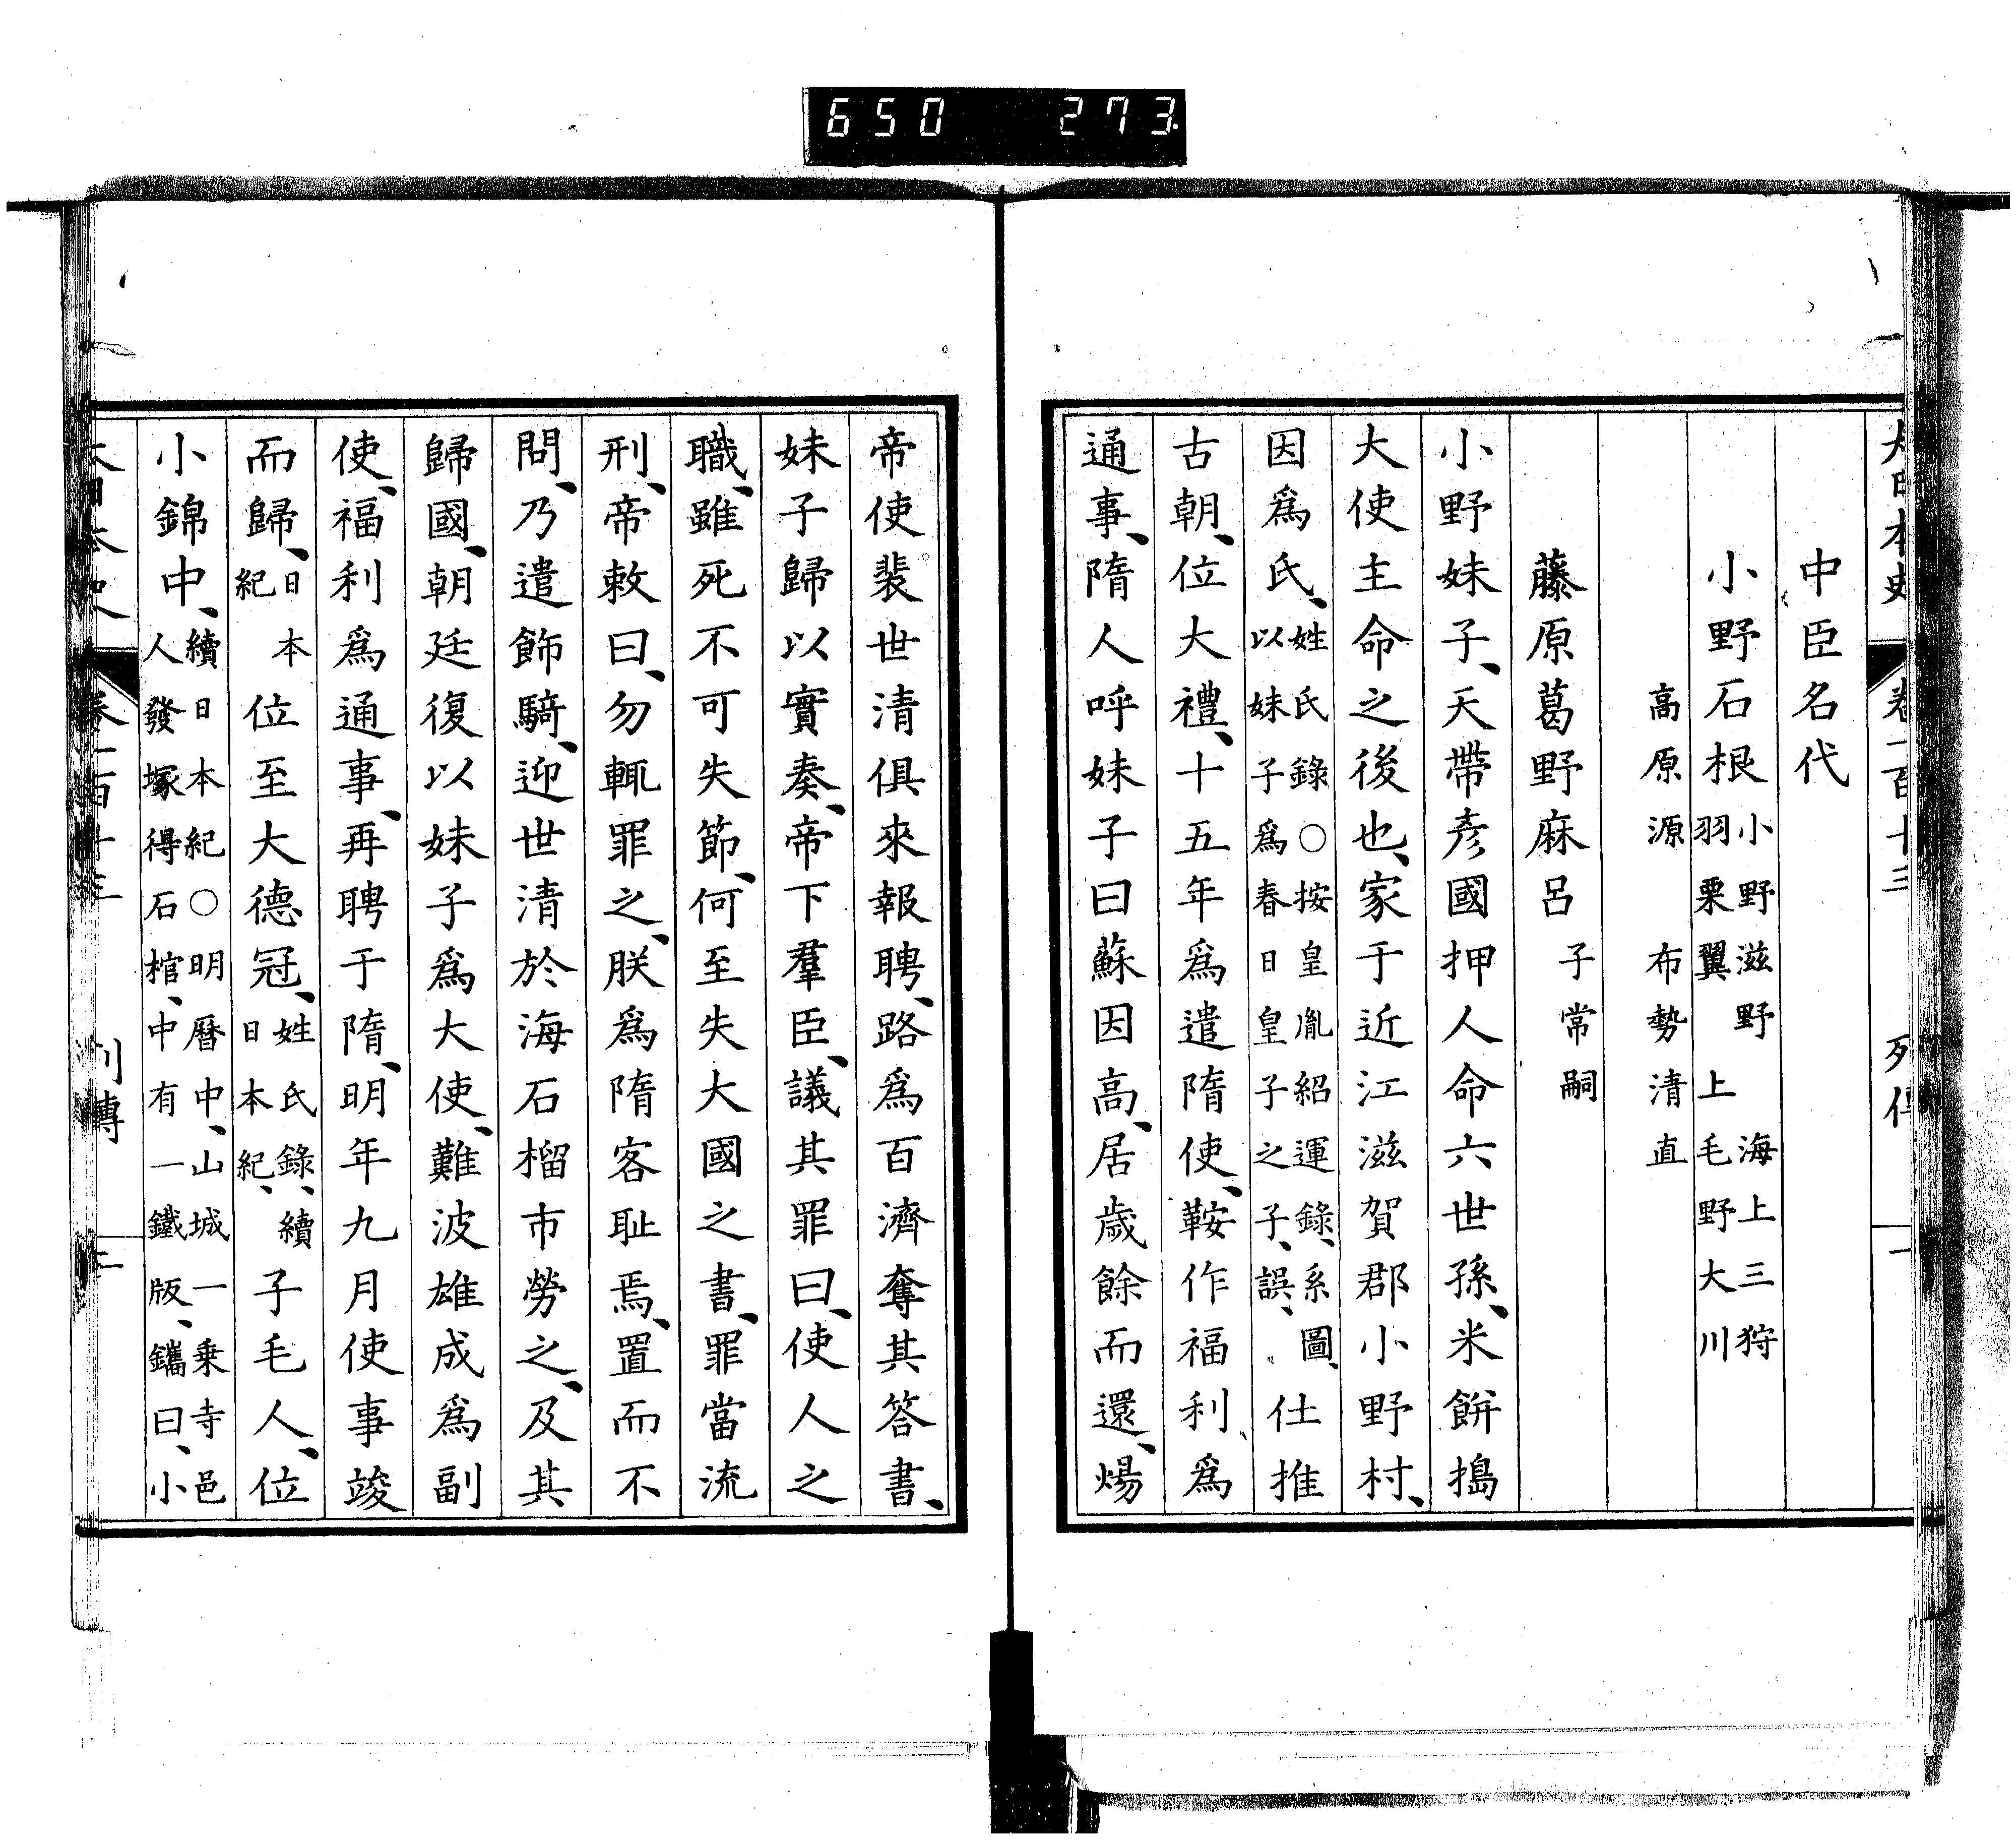 650 273.
大日本史 卷一百十三 列傳 一
中臣名代
小野石根 小野滋野 海上三狩
羽栗翼 上毛野大川
高原源 布勢清直
藤原葛野麻呂 子常嗣
小野妹子、天帶彥國押人命六世孫、米餠搗
大使主命之後也、家于近江滋賀郡小野村、
因爲氏、姓氏錄○按皇胤紹運錄、系圖、
以妹子爲春日皇子之子、誤、仕推
古朝、位大禮、十五年爲遣隋使、鞍作福利爲
通事、隋人呼妹子曰蘇因高、居歲餘而還、煬
帝使裴世清俱來報聘、路爲百濟奪其答書、
妹子歸以實奏、帝下羣臣、議其罪曰、使人之
職、雖死不可失節、何至失大國之書、罪當流
刑、帝敕曰、勿輒罪之、朕爲隋客耻焉、置而不
問、乃遣飾騎、迎世清於海石榴市勞之、及其
歸國、朝廷復以妹子爲大使、難波雄成爲副
使、福利爲通事、再聘于隋、明年九月使事竣
而歸、日本
紀 位至大德冠、姓氏錄、續
日本紀、子毛人、位
小錦中、續日本紀○明曆中、山城一乘寺邑
人發塚得石棺、中有一鐵版、鐫曰、小
大日本史 卷一百十三 列傳 二